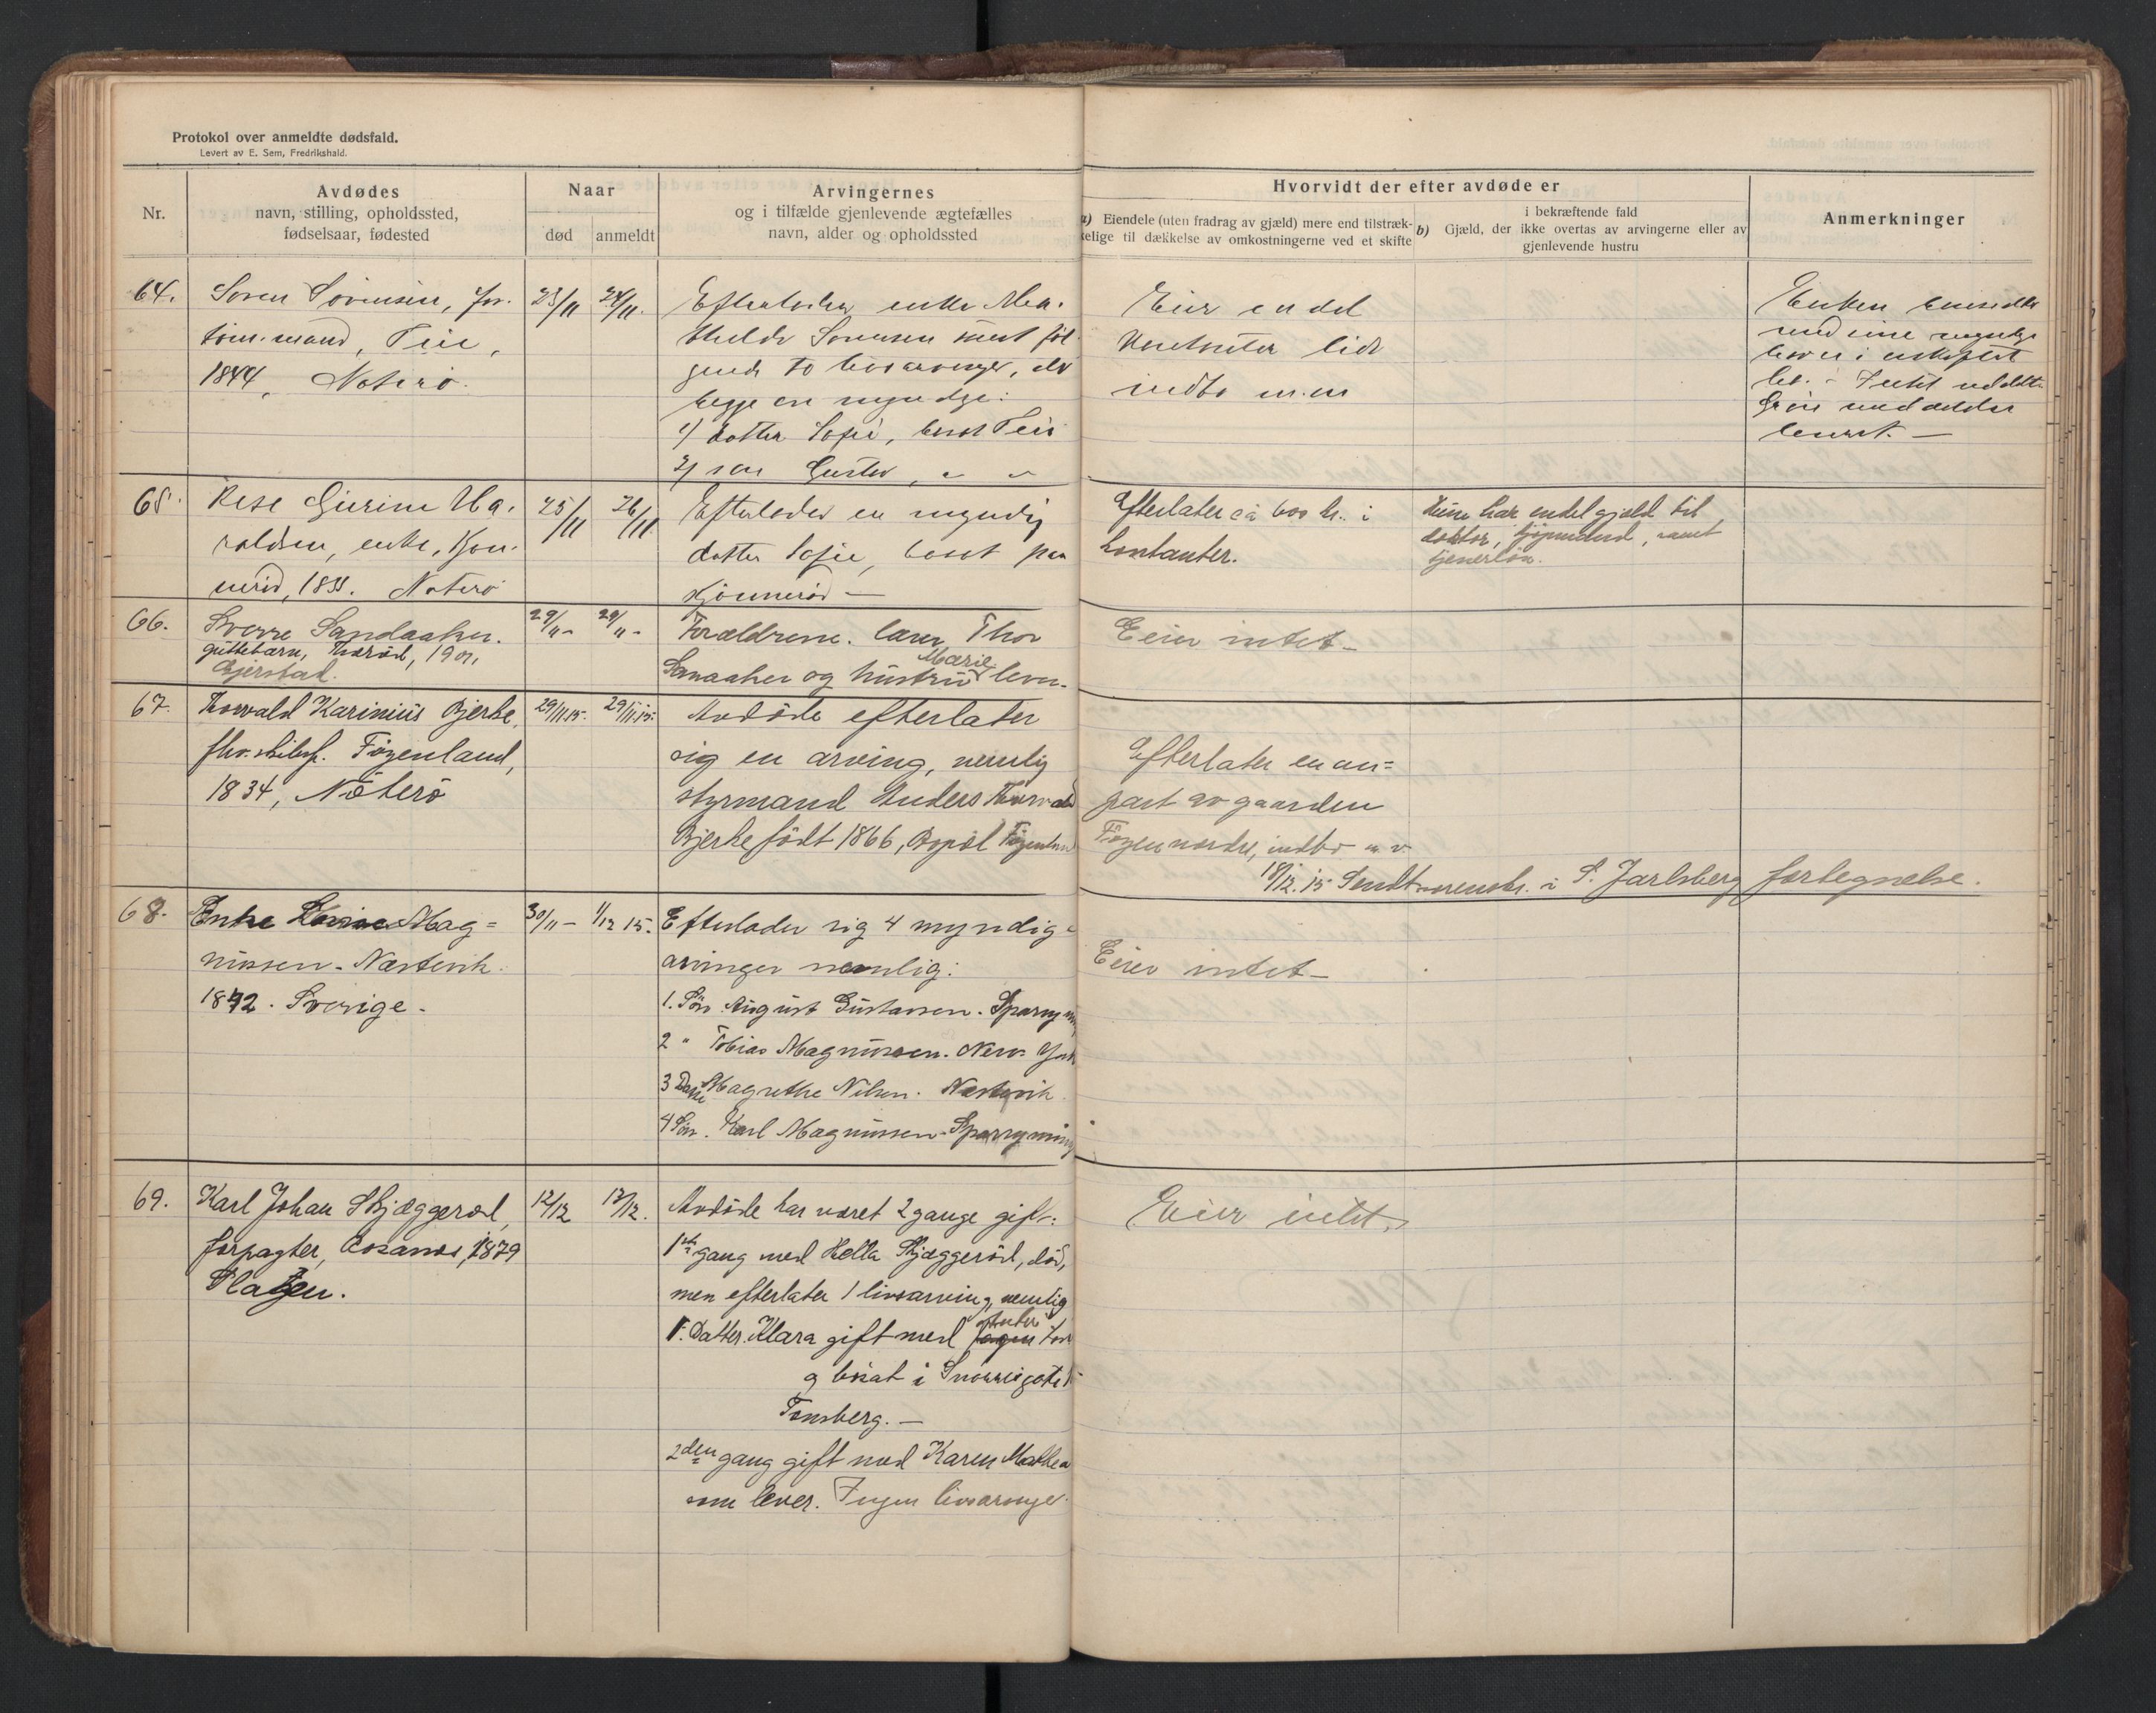 Protokol over anmeldte dødsfald.
Levert av E. Sem, Fredrikshald.
Nr.
Avdødes
navn, stilling, opholdssted,
fødselsaar, fødested
Naar
død
anmeldt
Arvingernes
og i tilfælde gjenlevende ægtefælles
navn, alder og opholdssted
Hvorvidt der efter avdøde er
a) Eiendele (uten fradrag av gjæld) mere end tilstræk-
kelige til dækkelse av omkostningerne ved et skifte
i bekræftende fald
b) Gjæld, der ikke overtas av arvingerne eller av
gjenlevende hustru
Anmerkninger
64.
Soren Sörensen,
mand, Teie,
1844, Nøterö.
23/11
24/11.
Efterlader enke
Sörensen samt føl-
gende to livsarvinger, der
begge er myndige:
1) datter Sofie, bosat Teie
2) søn Gustav, " "
Eier en del
kontanter lidt
indbo m.m
Enken hensidder
med sine myndige
børn i uskiftet
bo.
65.
enke,
1838. Nøterö
25/11
26/11
Efterlader en myndig
datter Sofie, bosat paa
Kjönneröd —
Efterlater ca 600 kr. i
kontanter.
Hun har endel gjæld til
doktor, kjöpmænd, samt
tjenerlön.
66.
Sverre Sandaaker.
guttebarn, Tveröd, 1901,
Gjerstad.
29/11 -
29/11 -
Forældrene. lærer Thor
Sanaaker og hustru Marie lever.
Eier intet -
67.
Torvald Karinius Bjerke,
fhv. skibsf. Föyenland,
1834, Nöterö
29/11.15.
29/11.15.
Avdöde efterlater
sig en arving, nemlig
styrmand Anders Thorvald
Bjerke födt 1866, Bopæl Föyenland
Efterlater en an=
part av gaarden
Föyen nordre, indbo m.v.
18/12.15 Sendt sorenskr. i S. Jarlsberg fortegnelse.
68.
Enke Lovise Mag=
nussen - Næstevik.
1842. Sverige -
30/11 -
1/12 15.
Efterlader sig 4 myndige
arvinger nemlig:
1. Sön August Gustavsen.
2 " Tobias Magnussen. New York
3 Datter Magrethe Nilsen. Næstevik.
4 Sön. Karl Magnussen -
Eier intet -
69.
Karl Johan Skjæggeröd,
forpagter, Rosanes, 1879
12/12
13/12.
Avdöde har været 2 gange gift:
1ste gang med Helta Skjæggeröd, död,
men efterlater 1 livsarving, nemlig
1. Datter. Klara gift med
og bosat i
Tönsberg. -
2den gang gift med Karen Mathea
som lever. Ingen livsarvinger.
Eier intet.